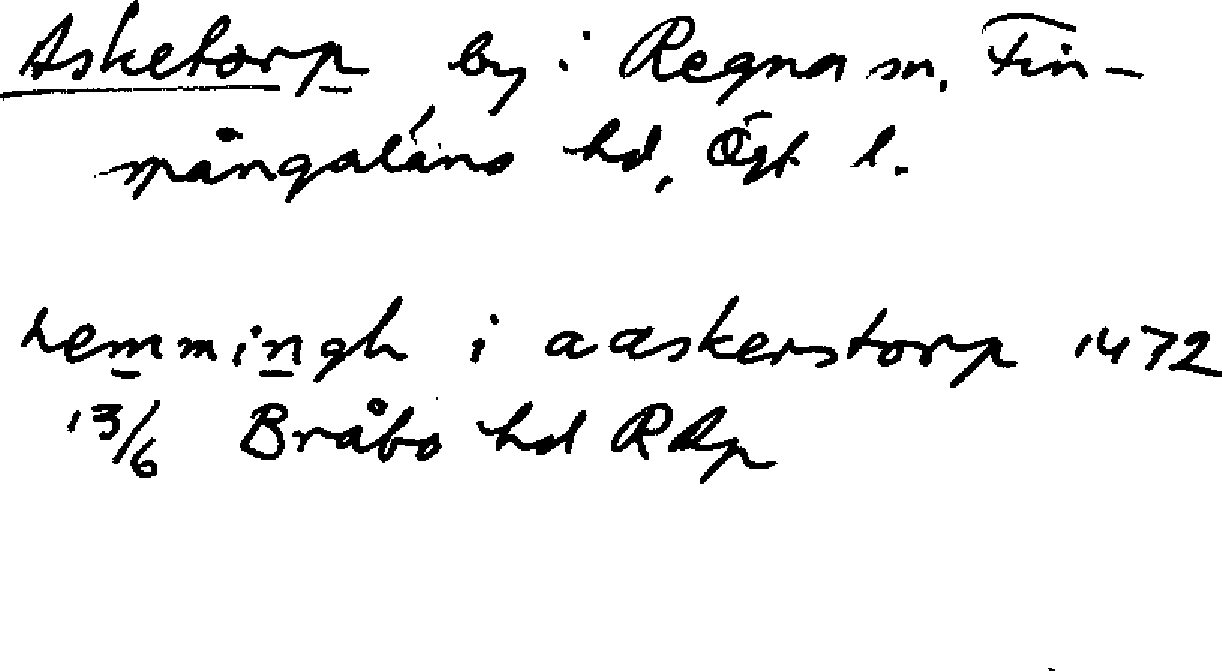 Asketorp by i Regna sn, Fin-
spångaläns hd, Ögl l.
hemmingh i aaskerstorp 1472
13/6 Bråbo hd RAp